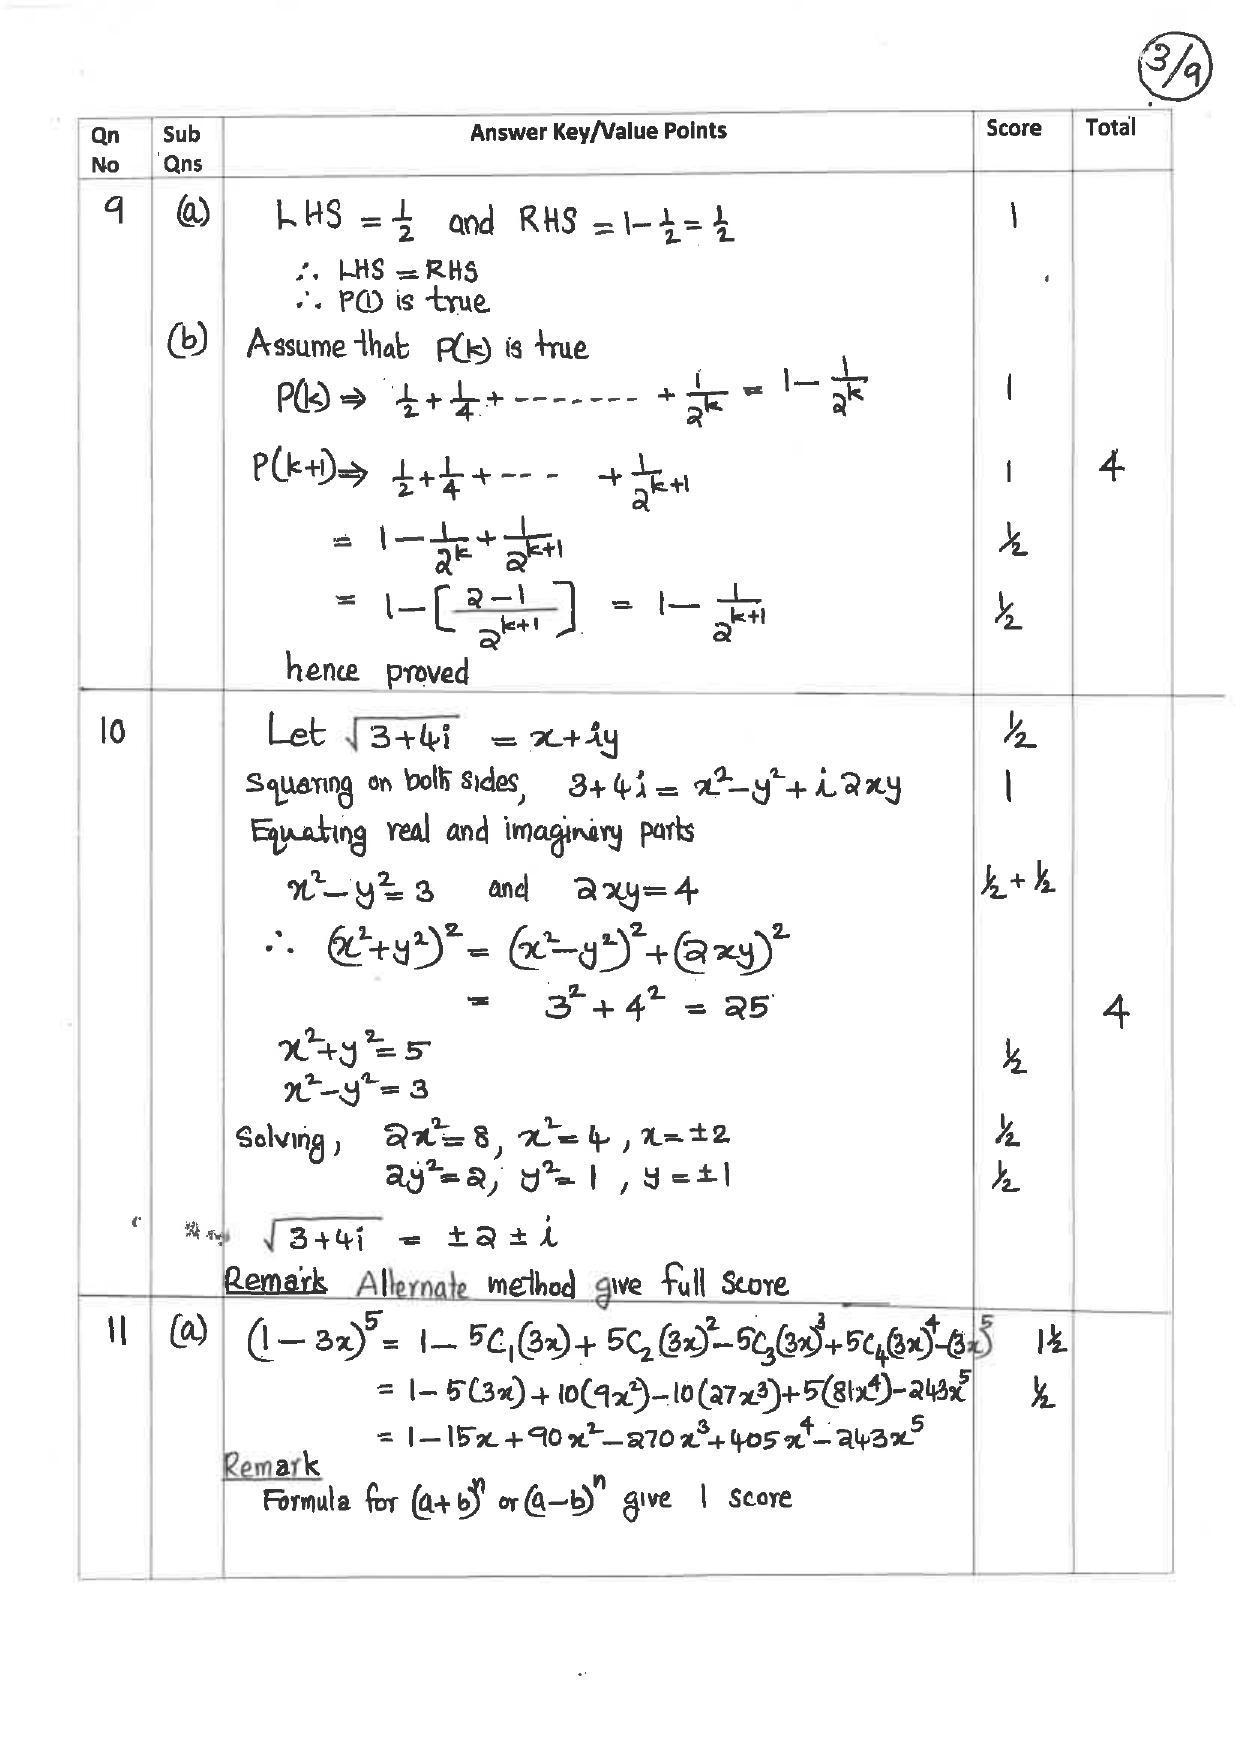 3/9
Qn No Sub Qns Answer Key/Value Points Score Total
9 (a) LHS = 1/2 and RHS = 1 - 1/2 = 1/2 1
∴ LHS = RHS
∴ P(1) is true
(b) Assume that P(k) is true
P(k) ⇒ 1/2 + 1/4 + ------- + 1/2^k = 1 - 1/2^k 1
P(k+1) ⇒ 1/2 + 1/4 + ---- + 1/2^(k+1) 1 4
= 1 - 1/2^k + 1/2^(k+1) 1/2
= 1 - [(2-1)/2^(k+1)] = 1 - 1/2^(k+1) 1/2
hence proved
10 Let √(3+4i) = x+iy 1/2
Squaring on both sides, 3+4i = x² - y² + i2xy 1
Equating real and imaginary parts
x² - y² = 3 and 2xy = 4 1/2 + 1/2
∴ (x²+y²)² = (x²-y²)² + (2xy)²
= 3² + 4² = 25 4
x²+y² = 5 1/2
x²-y² = 3
Solving, 2x² = 8, x² = 4, x = ±2 1/2
2y² = 2, y² = 1, y = ±1 1/2
√(3+4i) = ±2 ± i
Remark Alternate method give full score
11 (a) (1-3x)⁵ = 1 - 5C₁(3x) + 5C₂(3x)² - 5C₃(3x)³ + 5C₄(3x)⁴ - (3x)⁵ 1 1/2
= 1 - 5(3x) + 10(9x²) - 10(27x³) + 5(81x⁴) - 243x⁵ 1/2
= 1 - 15x + 90x² - 270x³ + 405x⁴ - 243x⁵
Remark
Formula for (a+b)ⁿ or (a-b)ⁿ give 1 score